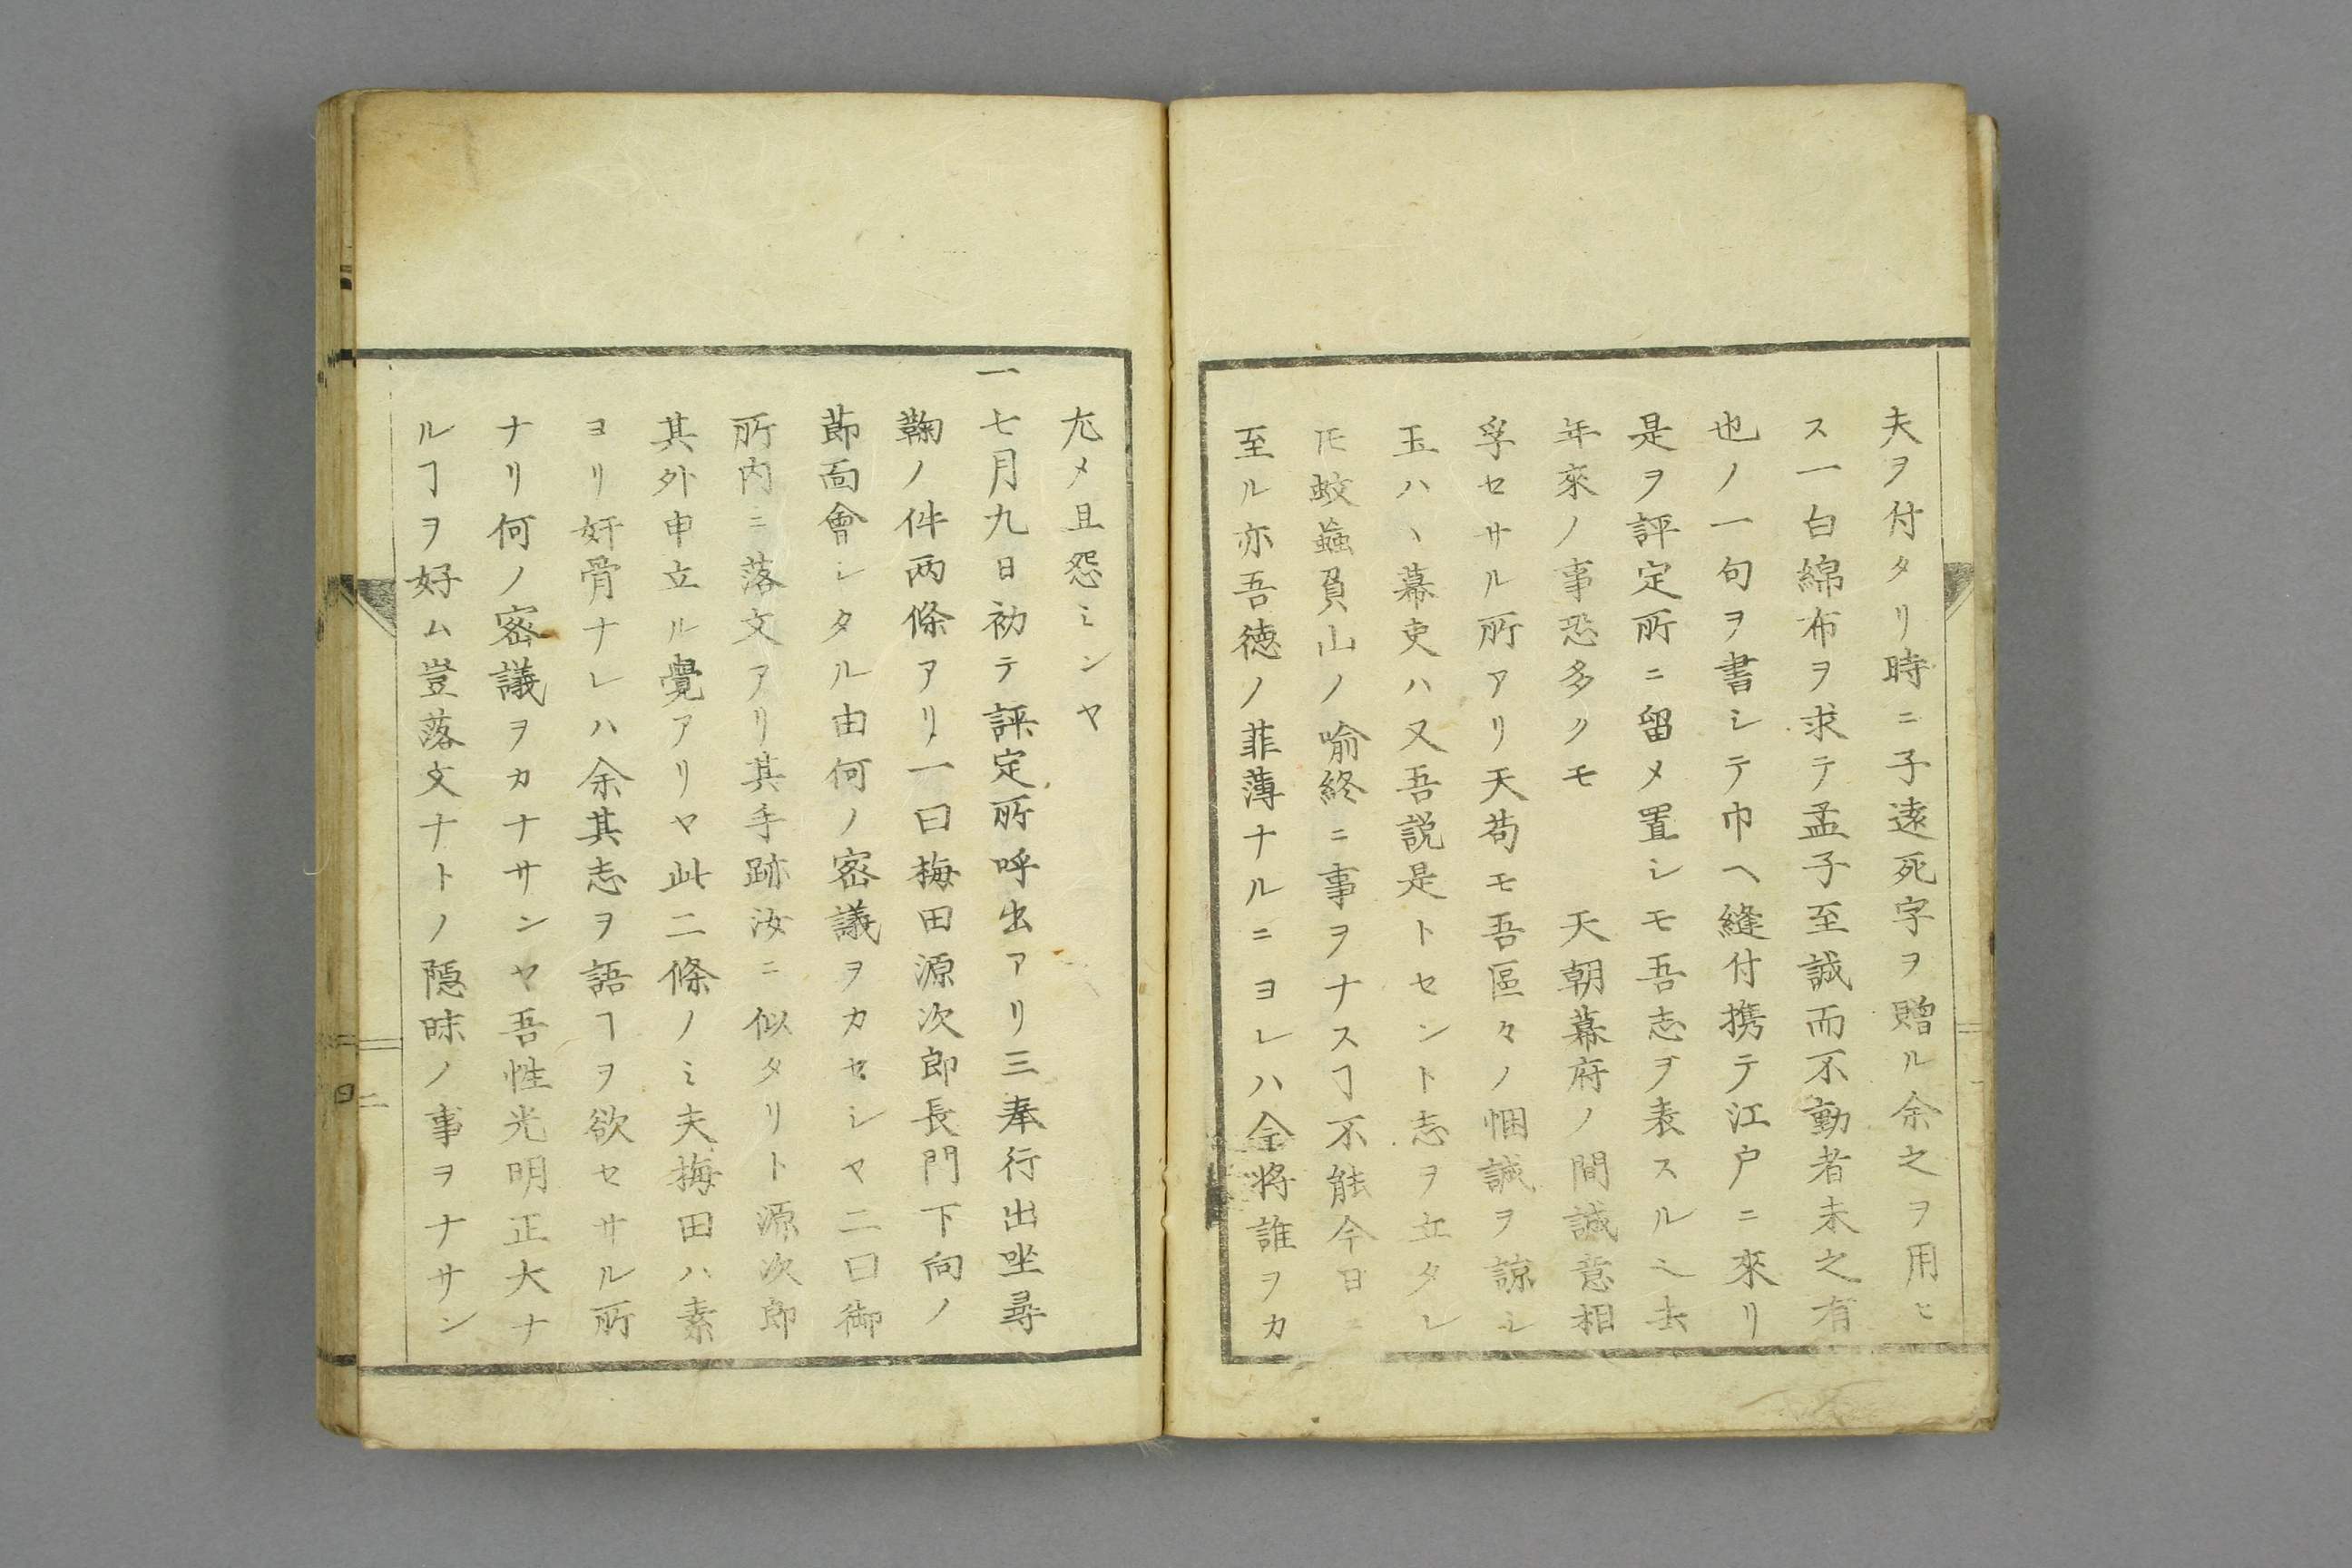 夫ヲ付タリ時ニ子遠死字ヲ贈ル余之ヲ用ヒ
ス一白綿布ヲ求テ孟子至誠而不動者未之有
也ノ一句ヲ書シテ巾ヘ縫付携テ江戸ニ來リ
是ヲ評定所ニ留メ置シモ吾志ヲ表スルミ去
年來ノ事恐多クモ　天朝幕府ノ間誠意相
孚セサル所アリ天苟モ吾區々ノ悃誠ヲ諒シ
玉ハヽ幕吏ハ又吾説是トセント志ヲ立タレ
𪜈蚊蝱負山ノ喩終ニ事ヲナスヿ不能今日ニ
至ル亦吾徳ノ菲薄ナルニヨレハ今将誰ヲカ
尤メ且怨ミンヤ
一七月九日初テ評定所呼出アリ三奉行出坐尋
鞠ノ件两條アリ一曰梅田源次郎長門下向ノ
莭面會シタル由何ノ密議ヲカセシヤ二曰御
所内ニ落文アリ其手跡汝ニ似タリト源次郎
其外申立ル覺アリヤ此二條ノミ夫梅田ハ素
ヨリ奸骨ナレハ余其志ヲ語ヿヲ欲セサル所
ナリ何ノ密議ヲカナサンヤ吾性光明正大ナ
ルヿヲ好ム豈落文ナトノ隠昧ノ事ヲナサン
二